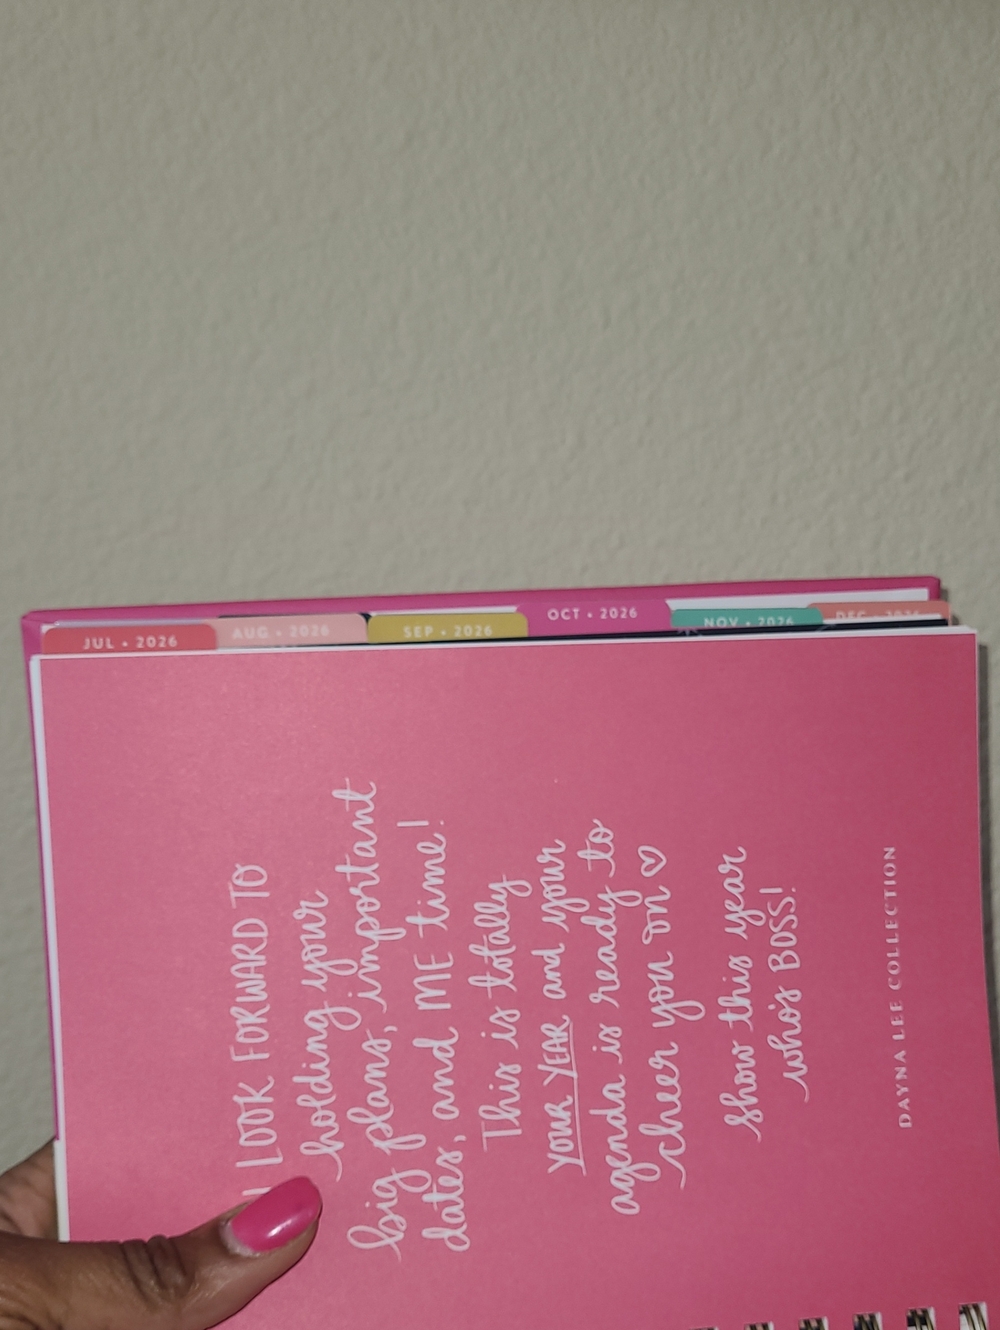 JUL • 2026
AUG • 2026
SEP • 2026
OCT • 2026
NOV • 2026
DEC • 2026
I LOOK FORWARD TO
holding your
big plans, important
dates, and ME time!
This is totally
YOUR YEAR and your
agenda is ready to
cheer you on ♡
Show this year
who's BOSS!
DAYNA LEE COLLECTION